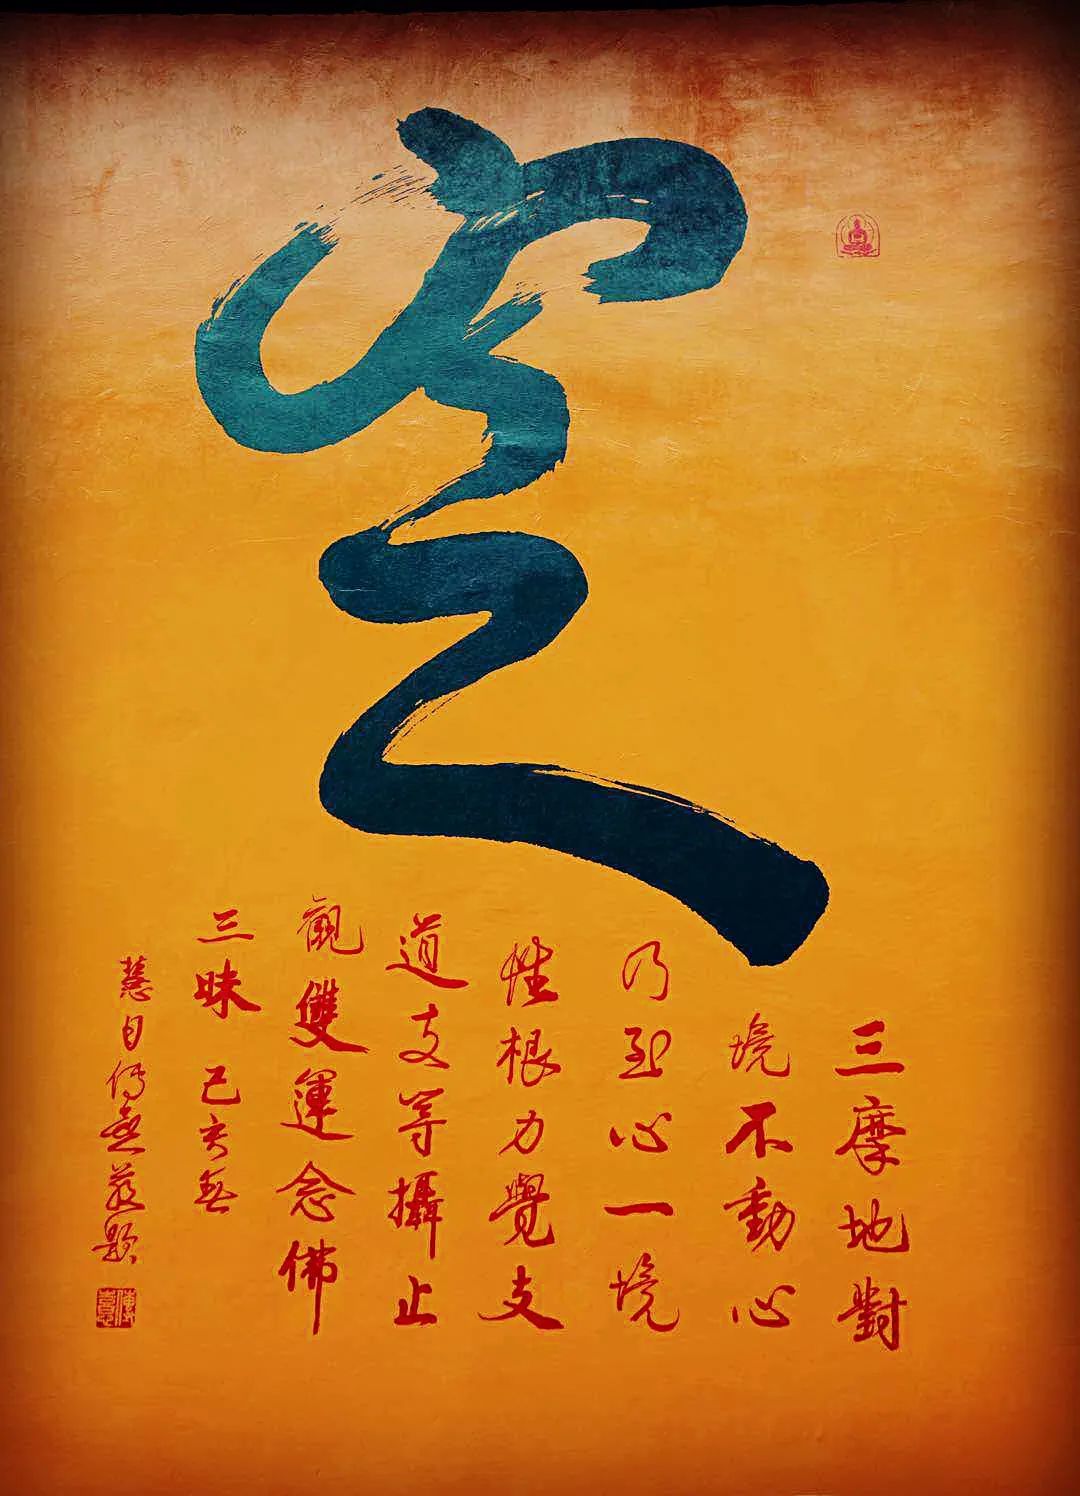 定
三摩地對
境不動心
乃至心一境
性根力覺支
道支等攝止
觀雙運念佛
三昧 己亥
慧日傳喜題
傳喜